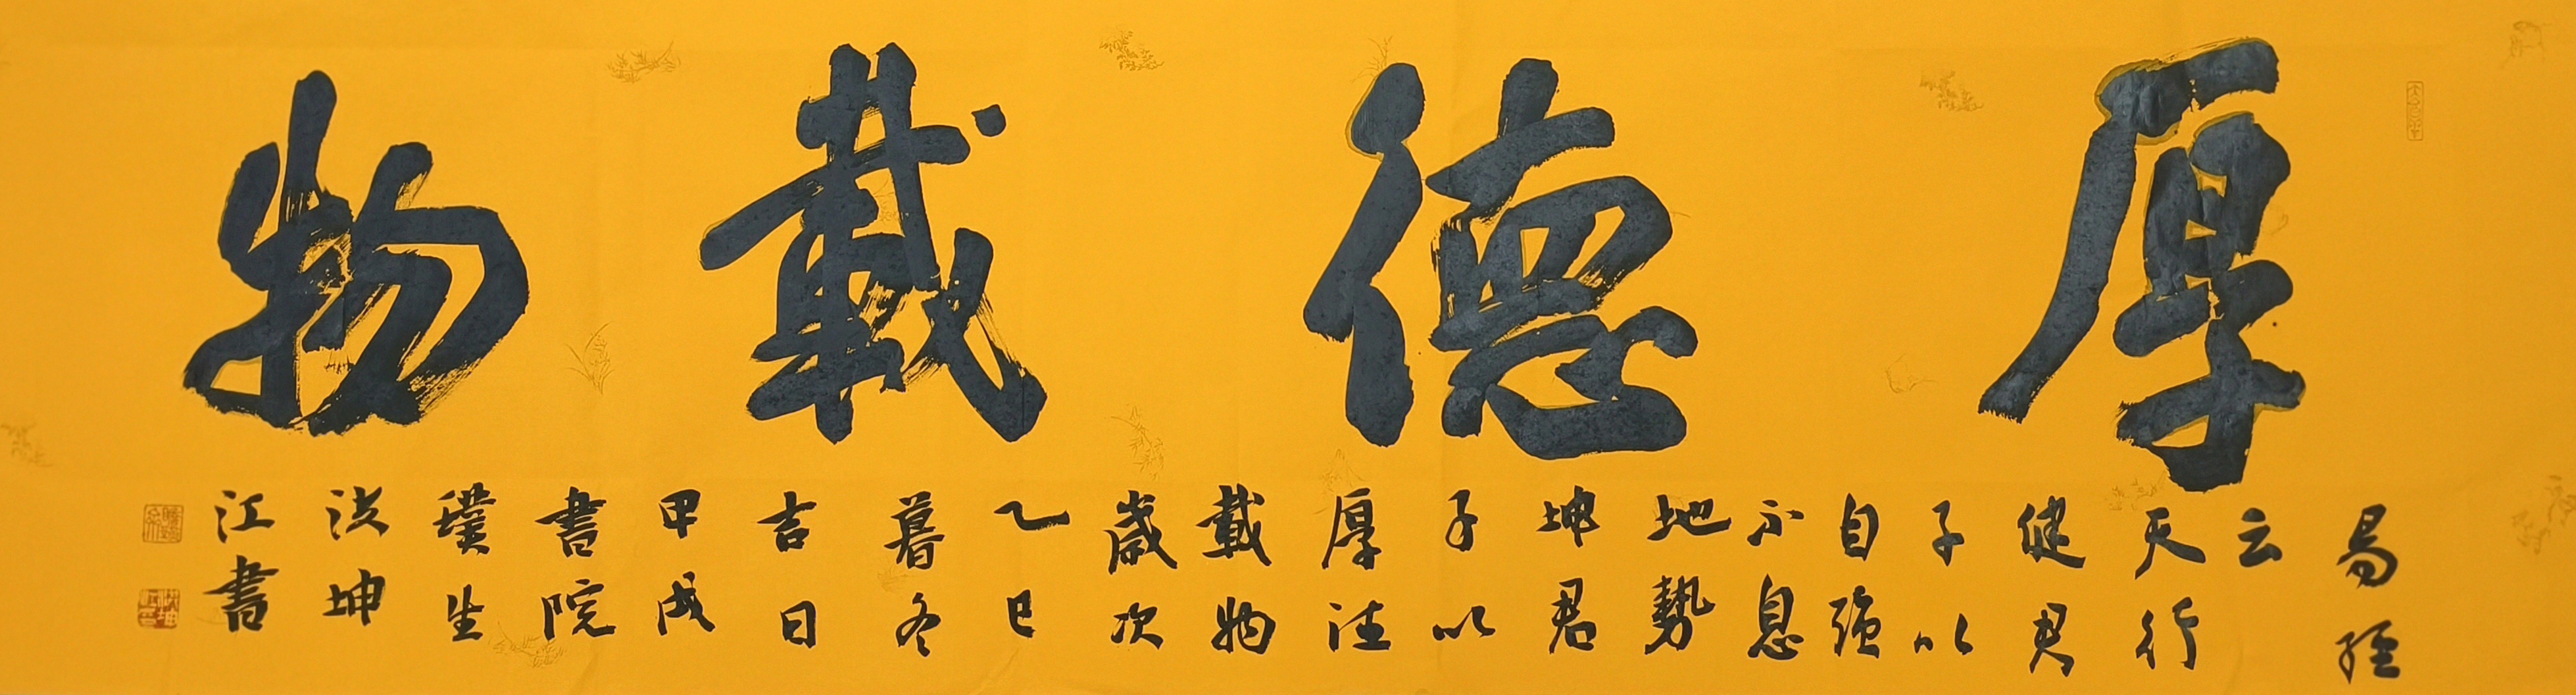 厚德載物
易經
云
天行
健君
子以
自強
不息
地勢
坤君
子以
厚德
載物
歲次
乙巳
暮冬
吉日
甲成
書院
璞生
洪坤
江書